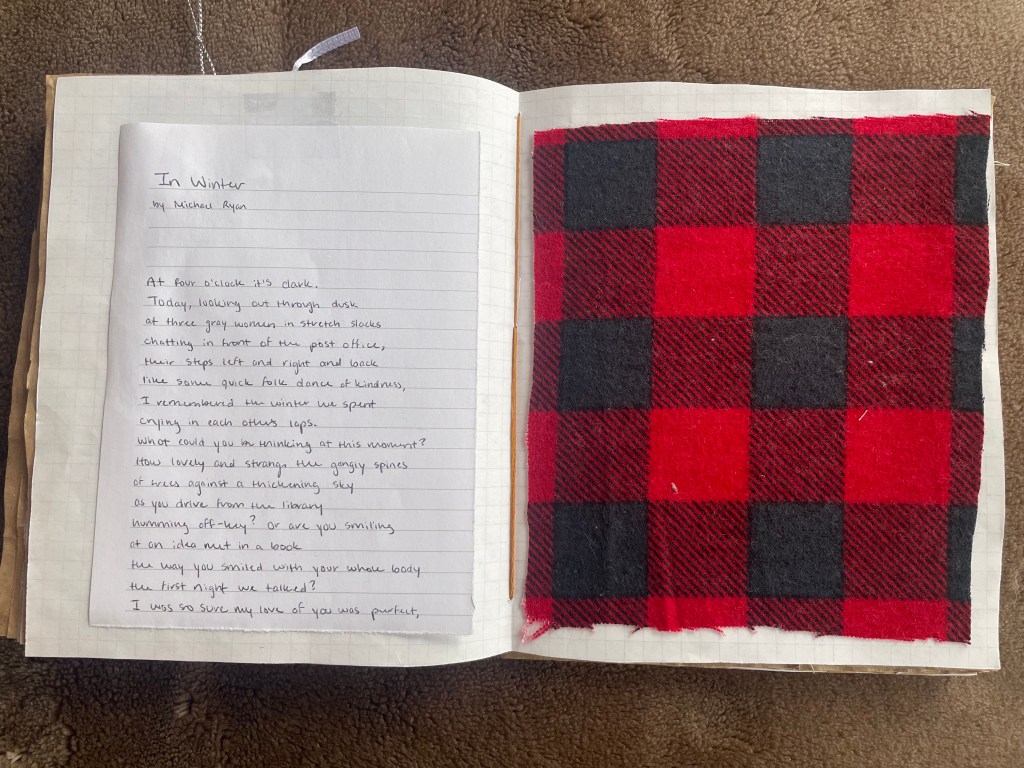 In Winter
by Michael Ryan
At four o'clock it's dark.
Today, looking out through dusk
at three gray women in stretch slacks
chatting in front of the post office,
their steps left and right and back
like some quick folk dance of kindness,
I remembered the winter we spent
crying in each others laps.
What could you be thinking at this moment?
How lovely and strange the gangly spines
of trees against a thickening sky
as you drive from the library
humming off-key? Or are you smiling
at an idea met in a book
the way you smiled with your whole body
the first night we talked?
I was so sure my love of you was perfect,